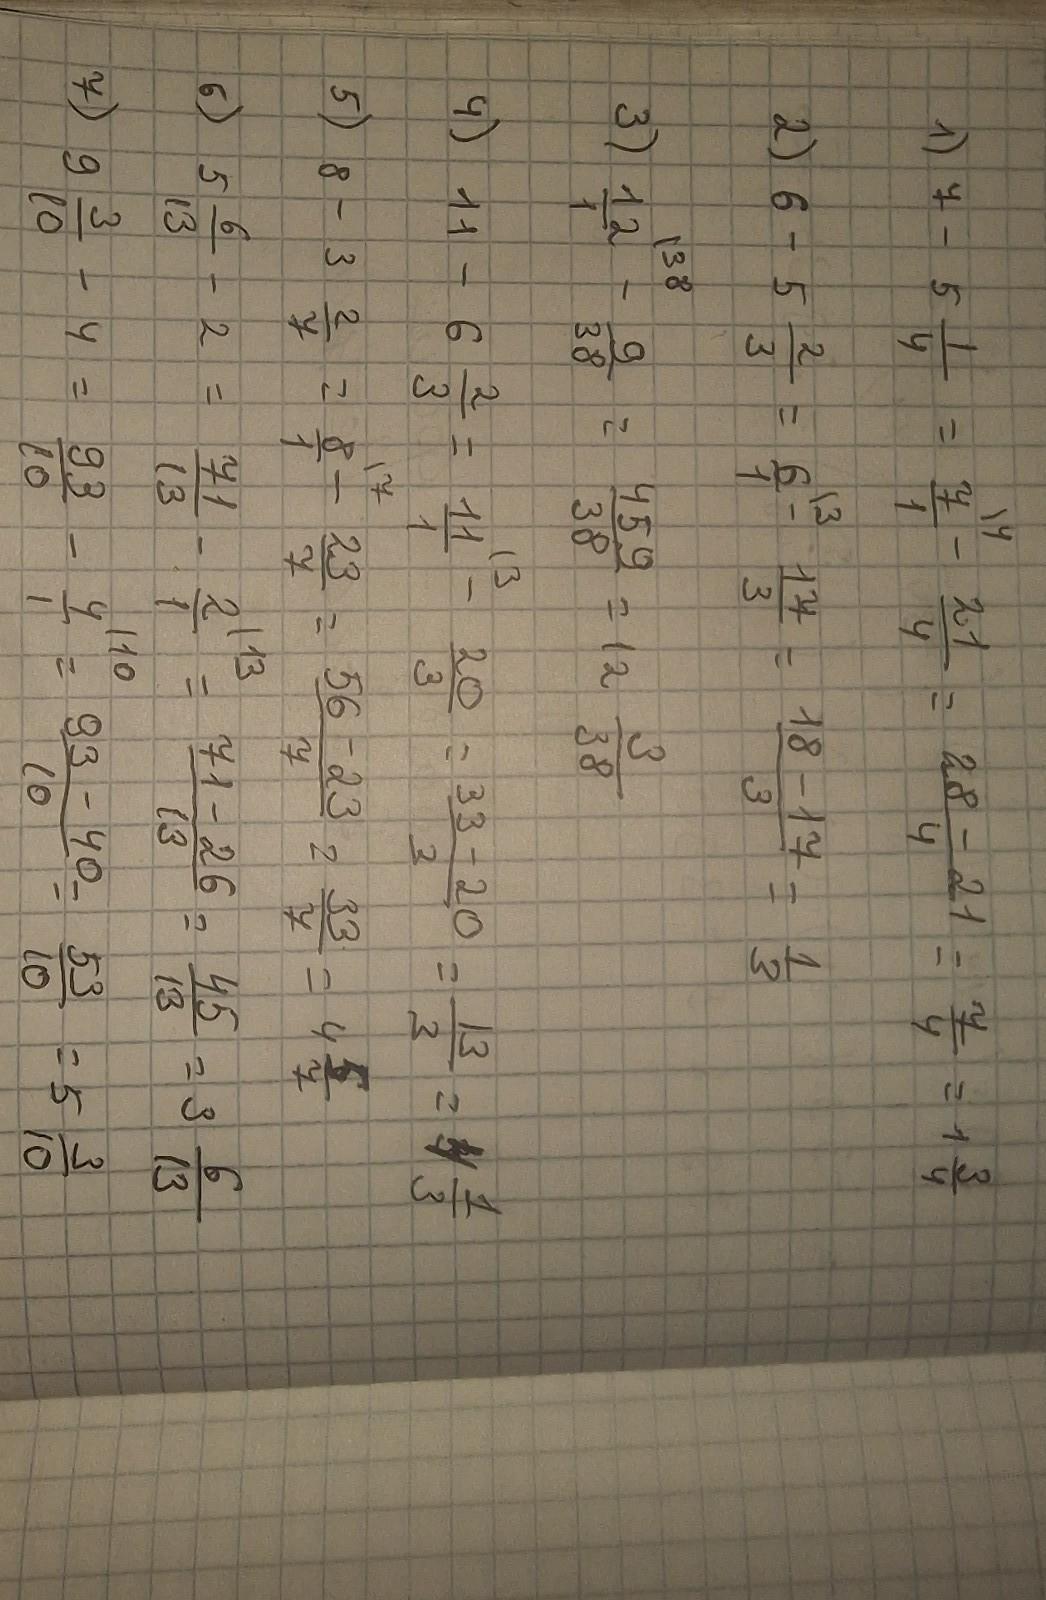 1) 7 - 5 1/4 = 7/1 \4 - 21/4 = 28 - 21/4 = 7/4 = 1 3/4
2) 6 - 5 2/3 = 6/1 \3 - 17/3 = 18 - 17/3 = 1/3
3) 12/1 \38 - 9/38 = 459/38 = 12 3/38
4) 11 - 6 2/3 = 11/1 \3 - 20/3 = 33 - 20/3 = 13/3 = 4 1/3
5) 8 - 3 2/7 = 8/1 \7 - 23/7 = 56 - 23/7 = 33/7 = 4 5/7
6) 5 6/13 - 2 = 71/13 - 2/1 \13 = 71 - 26/13 = 45/13 = 3 6/13
7) 9 3/10 - 4 = 93/10 - 4/1 \10 = 93 - 40/10 = 53/10 = 5 3/10